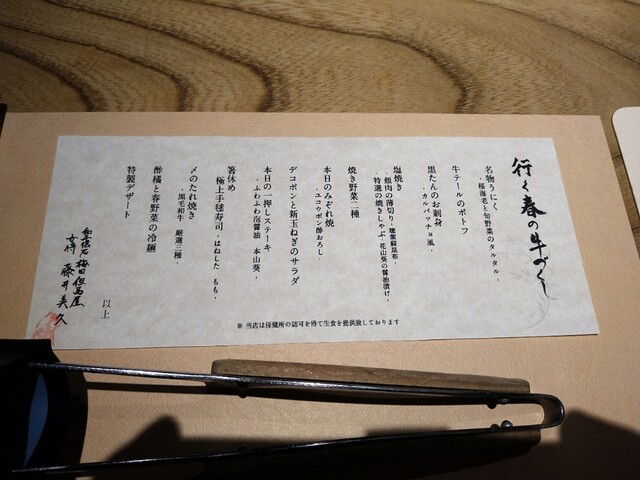 行く春の牛づくし
名物うにく
・桜海老と旬野菜のタルタル・
牛テールのポトフ
黒たんのお刺身
・カルパッチョ風・
塩焼き
頬肉の薄切り・穂紫蘇昆布・
特選の焼きしゃぶ・花山葵の醤油漬け・
焼き野菜二種
本日のみぞれ焼
・ユコウポン酢おろし・
デコポンと新玉ねぎのサラダ
本日の一押しステーキ
・ふわふわ泡醤油 本山葵・
箸休め
極上手毬寿司・はねした もも・
〆のたれ焼き
・黒毛和牛 厳選三種・
酢橘と春野菜の冷麺
特製デザート
以上
梅田但馬屋
女将 藤井美久
※ 当店は保健所の認可を得て生食を提供致しております